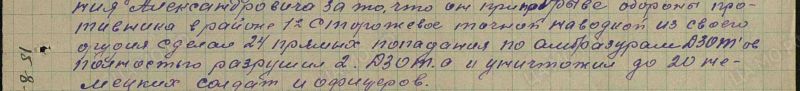 ния Александровича за то, что он при прорыве обороны про-
тивника в районе 1го Сторожевое точной наводкой из своего
орудия сделал 24 прямых попадания по амбразурам ДЗОТ'ов
полностью разрушил 2. ДЗОТ.а и уничтожил до 20 не-
мецких солдат и офицеров.
15-8-